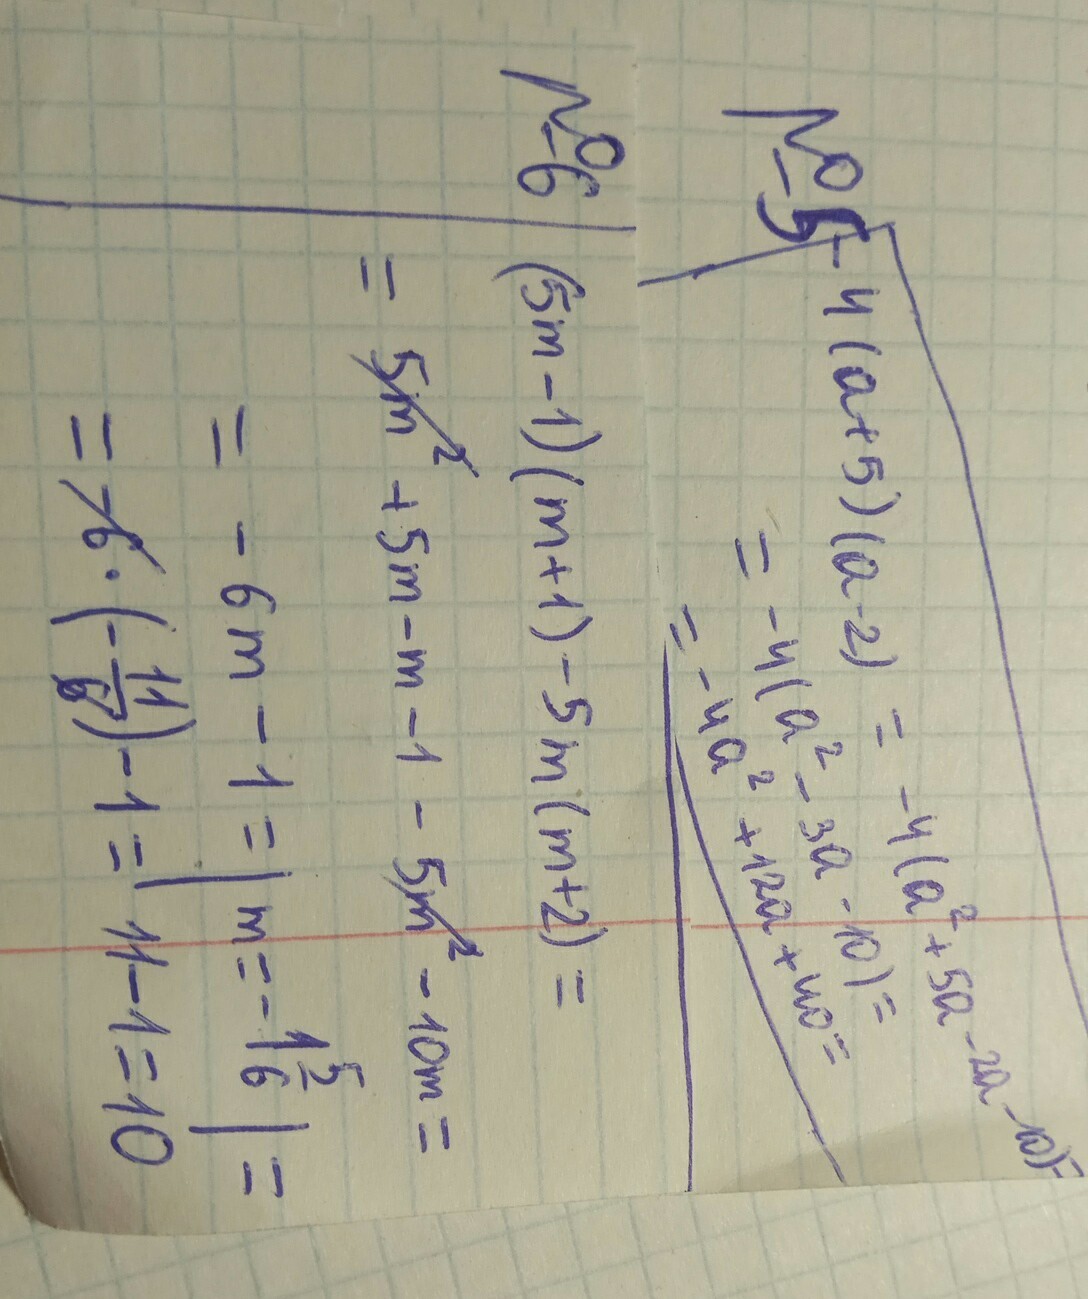 №5 -4(a+5)(a-2) = -4(a²+5a-2a-10)=
= -4(a²-3a-10)=
= -4a²+12a+40=
№6 (5m-1)(m+1)-5m(m+2)=
= 5m²+5m-m-1-5m²-10m=
= -6m-1=|m=-1 5/6|=
= -6·(-11/6)-1= 11-1=10